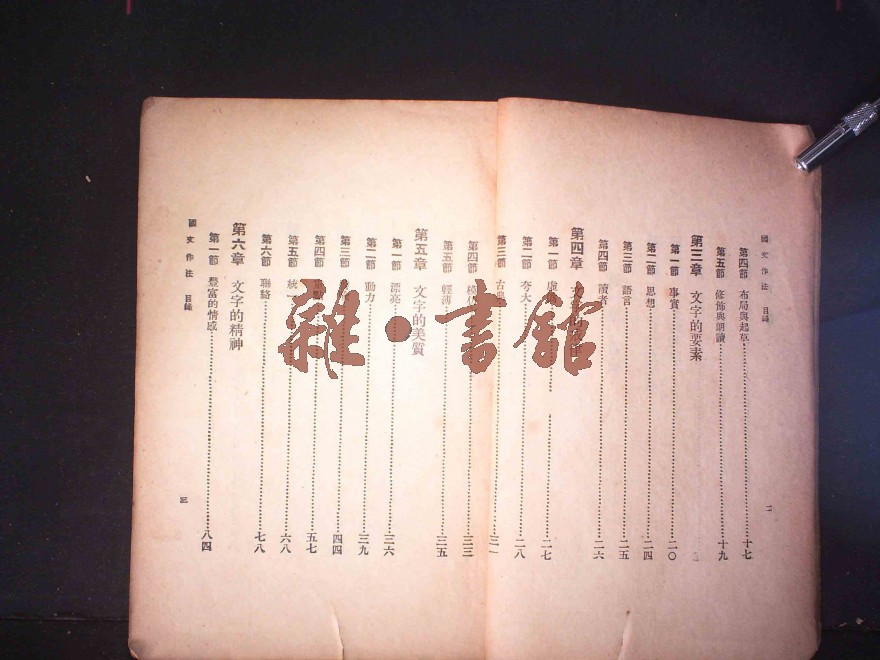 國文作法 目錄
第四節 布局與起草 十七
第五節 修飾與朗讀 十九
第三章 文字的要素
第一節 事實 二〇
第二節 思想 二四
第三節 語言 二五
第四節 讀者 二六
第四章 文
第一節 虛 二七
第二節 夸大 二八
第三節 古 三一
第四節 模 三三
第五節 輕薄 三五
第五章 文字的美質
第一節 漂亮 三六
第二節 動力 三九
第三節 四四
第四節 五七
第五節 統一 六八
第六節 聯絡 七八
第六章 文字的精神
第一節 豐富的情感 八四
國文作法 目錄
二
三
雜·書館